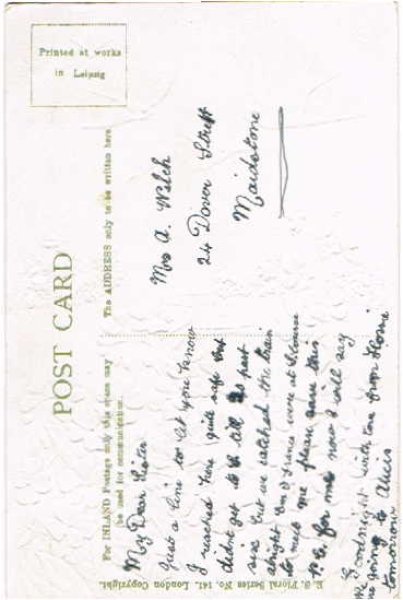 Printed at works
in Leipzig
POST CARD
For INLAND Postage only this space may
be used for communication.
The ADDRESS only to be written here
My Dear Sister
Just a line to let you know
I reached here quite safe but
didnt get to till past
six but we catched the train
alright were at
to meet me please save this
P.C. for me now I will say
Goodnight with love from Florrie
going to Alices
tomorrow
Mrs A. Welch
24 Dover Street
Maidstone
E. S. Floral Series No. 141. London Copyright.